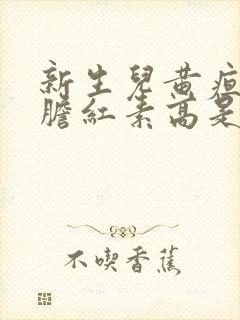 新生兒黃疸
膽紅素高是
不喫香蕉